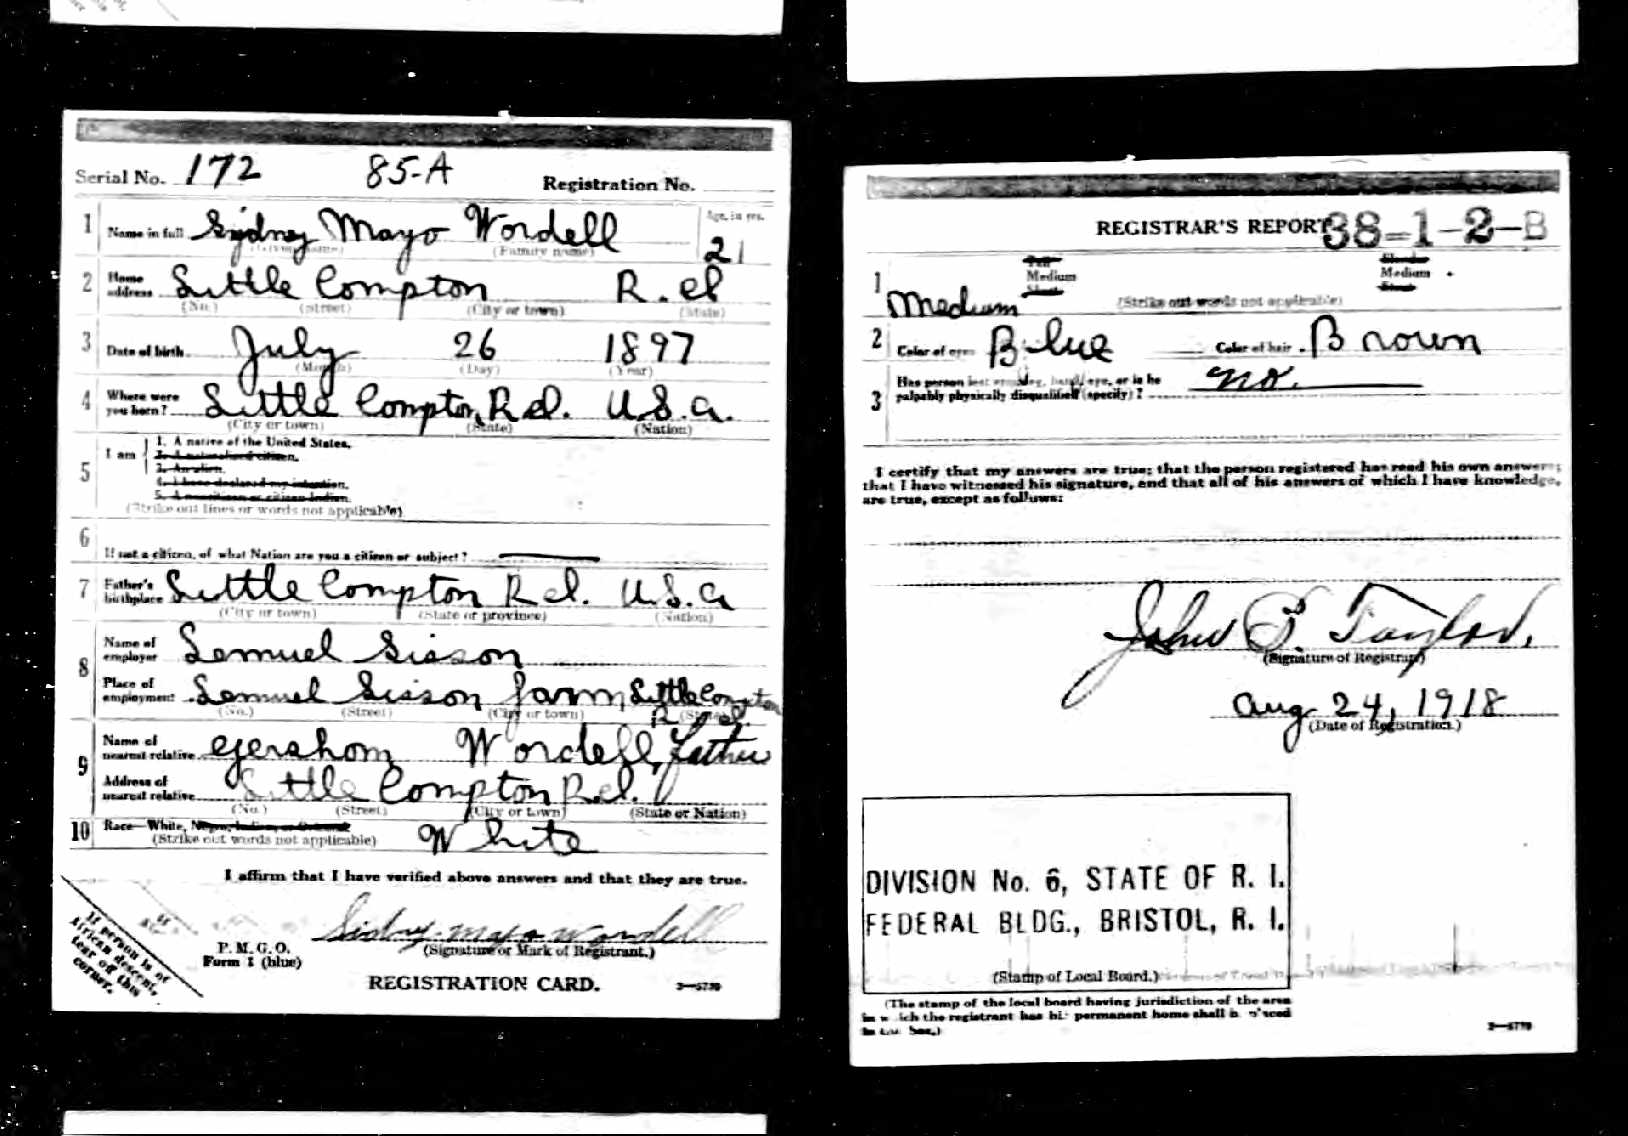 Serial No. 172 85-A Registration No.
1 Name in full Sydney Mayo Wordell Age, in yrs.
(Given name) (Family name) 21
2 Home address Little Compton R.I.
(No.) (Street) (City or town) (State)
3 Date of birth July 26 1897
(Month) (Day) (Year)
4 Where were you born? Little Compton, R.I. U.S.A.
(City or town) (State) (Nation)
5 I am
1. A native of the United States.
2. A naturalized citizen.
3. An alien.
4. I have declared my intention.
5. A noncitizen or citizen Indian.
(Strike out lines or words not applicable)
6 If not a citizen, of what Nation are you a citizen or subject?
7 Father's birthplace Little Compton R.I. U.S.A
(City or town) (State or province) (Nation)
8 Name of employer Lemuel Sisson
Place of employment Lemuel Sisson farm, Little Compton R.I.
(No.) (Street) (City or town) (State)
9 Name of nearest relative Gershom Wordell, Father
Address of nearest relative Little Compton R.I.
(No.) (Street) (City or town) (State or Nation)
10 Race—White, Negro, Indian, or Oriental White
(Strike out words not applicable)
I affirm that I have verified above answers and that they are true.
Sidny Mayo Wordell
P. M. G. O. (Signature or Mark of Registrant.)
Form 1 (blue)
REGISTRATION CARD.
If person is of
African descent,
tear off this
corner.
REGISTRAR'S REPORT 38-1-2-B
1 Tall Medium Short Slender Medium Stout
Medium (Strike out words not applicable)
2 Color of eyes Blue Color of hair Brown
3 Has person lost arm, leg, hand, eye, or is he
palpably physically disqualified (specify)? no.
I certify that my answers are true; that the person registered has read his own answers;
that I have witnessed his signature, and that all of his answers of which I have knowledge,
are true, except as follows:
John B Taylor.
(Signature of Registrar)
Aug 24, 1918
(Date of Registration.)
DIVISION No. 6, STATE OF R. I.
FEDERAL BLDG., BRISTOL, R. I.
(Stamp of Local Board.)
(The stamp of the local board having jurisdiction of the area
in which the registrant has his permanent home shall be placed
in this box.)